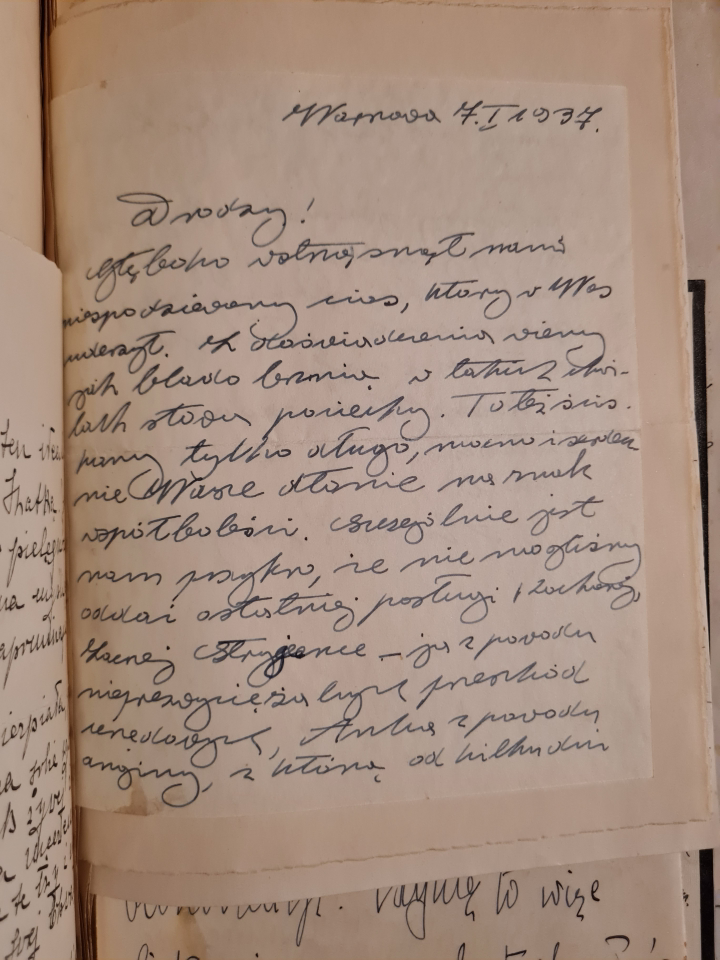 Warszawa 7.I 1937.
Drodzy!
Głęboko wstrząsnął nami
niespodziewany cios, który w Was
uderzył. Z doświadczenia wiemy
jak blado brzmią w takich chwi-
lach słowa pociechy. Toteż ścis-
kamy tylko długo, mocno i serdecz
nie Wasze dłonie na znak
współboleści. Szczególnie jest
nam przykro, że nie mogliśmy
oddać ostatniej posługi
Zacnej Stryjence – ja z powodu
nieprzezwyciężalnych przeszkód
urzędowych, Anka z powodu
anginy, z którą od kilku dni
ten
pielęg
cierpiała
te trzy
Zajmę to więc